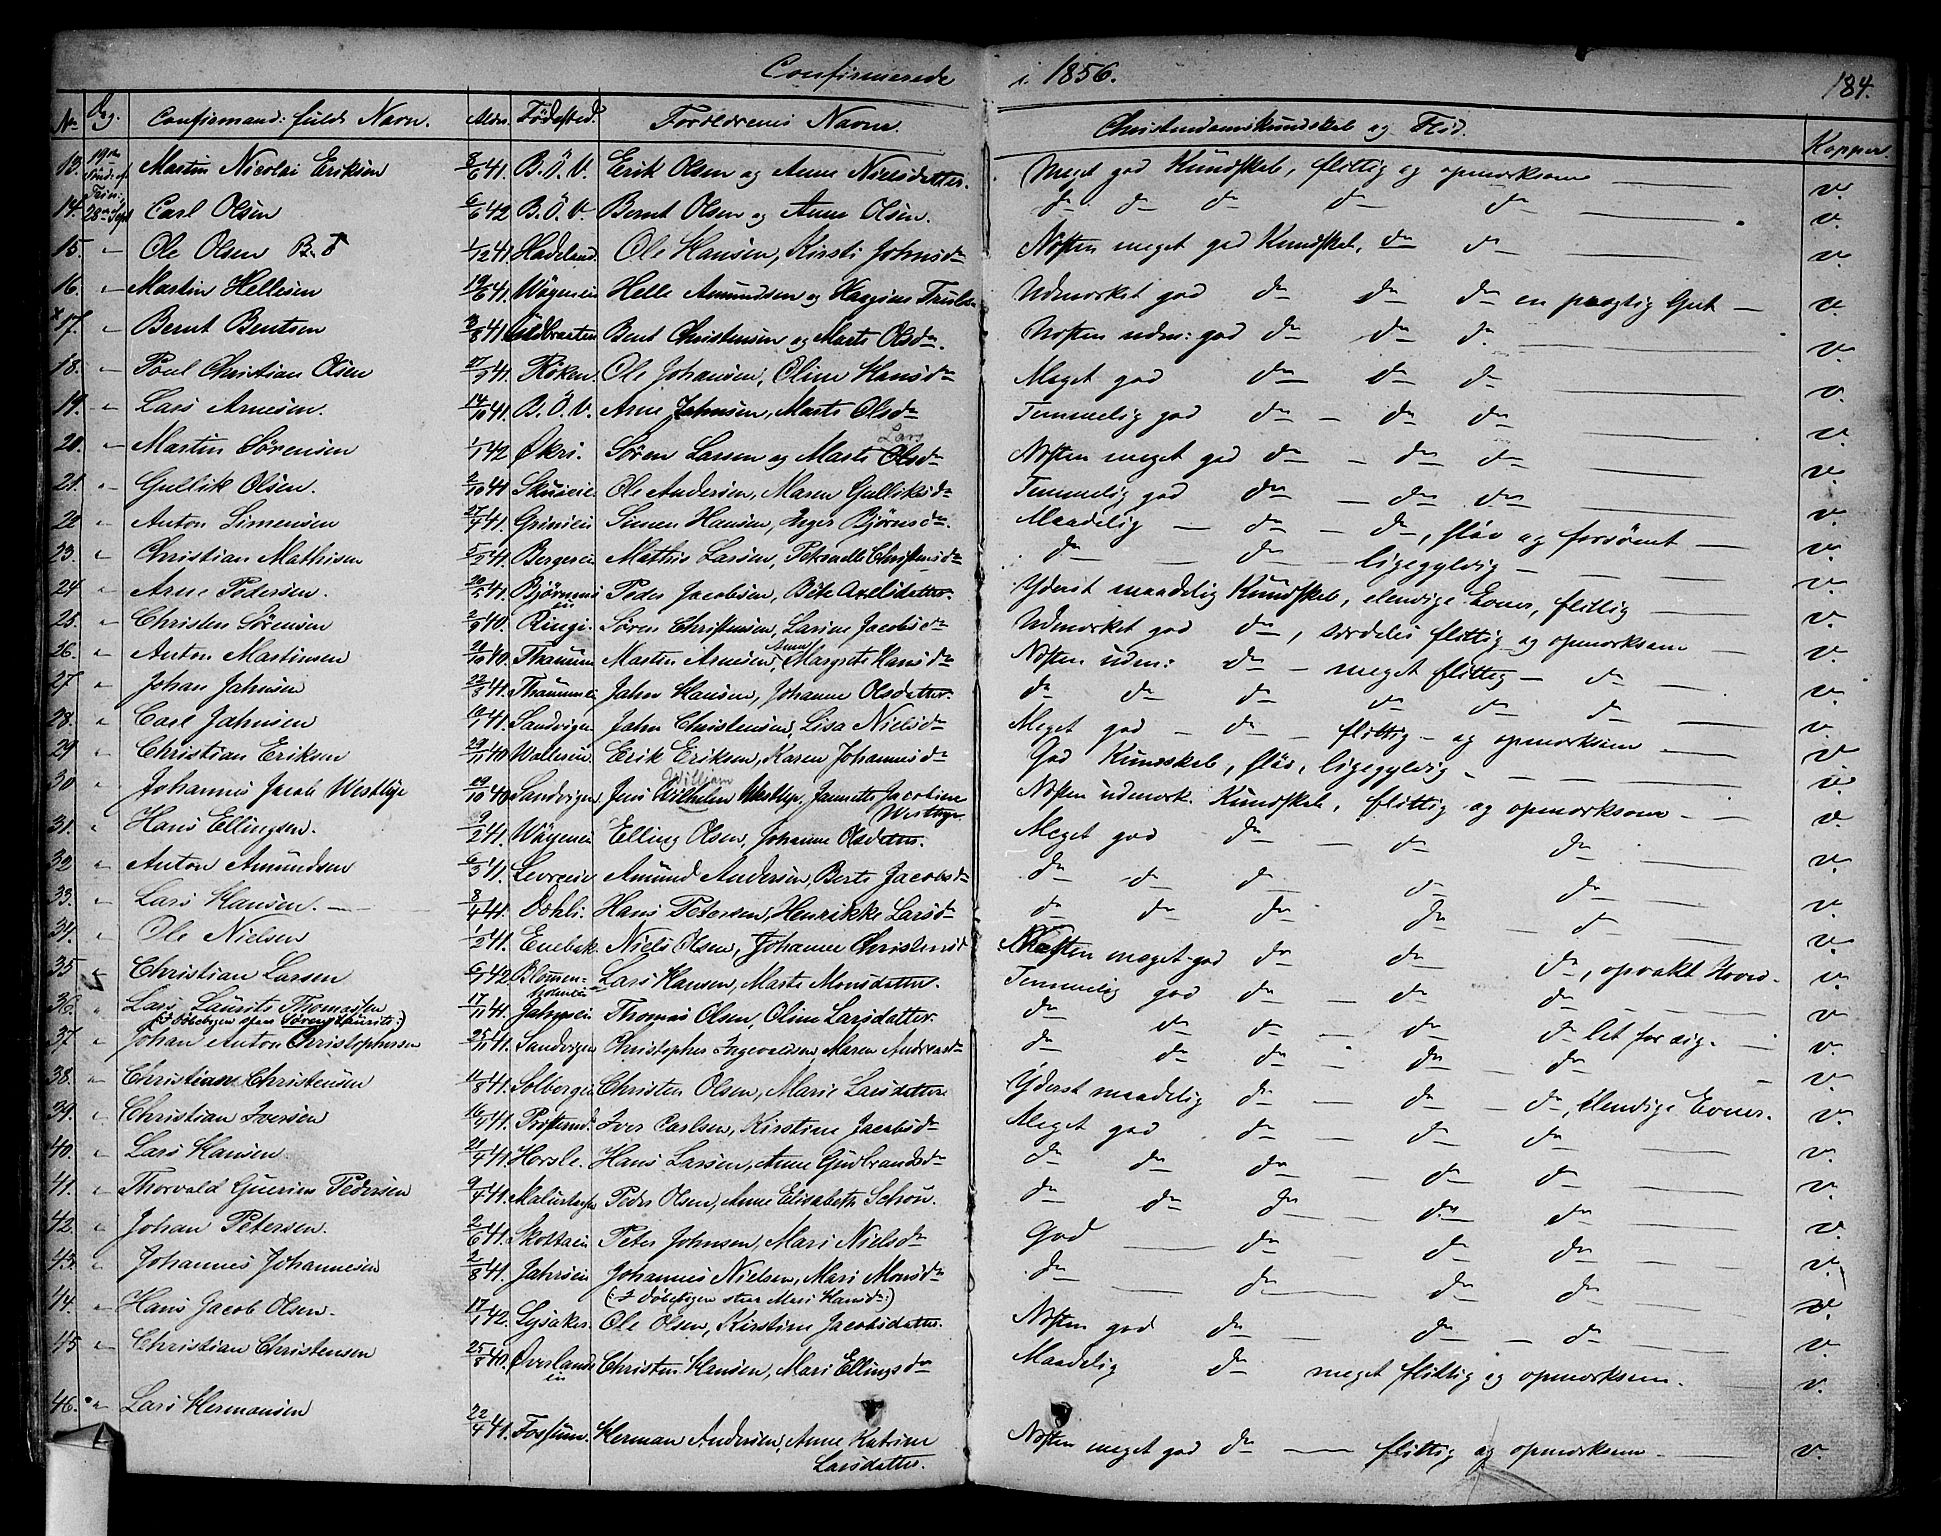 Confirmerede i 1856. 184.
No Dag. Confirmand: fulde Navn. Alder. Fødested. Forældrenes Navne. Christendomskundskab og Flid. Kopper.
13. 19de Sönd. ef. Trin: Martin Nicolai Eriksen 8/6 41. B.Ö.V. Erik Olsen og Anne Nielsdatter. Meget god Kundskab, flittig og opmærksom v.
14. 28de Sept Carl Olsen 6/6 42 B.Ö.V. Bernt Olsen og Anne Olsen. do do do do do v.
15. " Ole Olsen 1/12 41. Hadeland. Ole Hansen, Kirsti Johnsdr Næsten meget god Kundskab, do do v.
16. " Martin Hellesen 19/6 41. Wøyeneie Helle Amundsen og Udmærket god do do do en prægtig Gut v.
17. " Bernt Bentsen 3/8 41 Bent Christensen og Marte Olsdr. Næsten udm: god do do do v.
18. " Poul Christian Olsen 27/9 41. Røken. Ole Johansen, Oline Hansdr Meget god do do do v.
19. " Lars Arnesen. 14/10 41. B.Ö.V. Arne Johnsen, Marte Olsdr Temmelig god do do do v.
20. " Martin Sørensen 1/1 42 Økri. Søren Larsen og Marte Lars Olsdr Næsten meget god do do do v.
21. " Gullik Olsen. 2/10 41 Skuieie. Ole Andersen, Maren Gulliksdr Temmelig god do do do v.
22 " Anton Simensen 27/4 41. Grinieie Simen Hansen, Inger Bjørnsdr. Maadelig do do, sløv og forsømt v.
23. " Christian Mathisen 5/2 41. Bergereie Mathis Larsen, Petronelle Christensdr do do ligegyldig v.
24 " Arne Pedersen. 20/5 41. Bjørnseie Peder Jacobsen, Bête Axelsdatter. Yderst maadelig Kundskab, elendige Evner, flittig v.
25. " Christen Sørensen 2/9 40. Ringi. Søren Christensen, Larine Jacobsdr Udmærket god do, særdeles flittig og opmærksom v.
26. " Anton Martinsen 20/10 40. Martin Arnesen, Anne Margrete Hansdr Næsten udm: do meget flittig do v.
27. " Johan Jahnsen 22/3 41. Jahn Hansen, Johanne Olsdatter. do do do do do do v.
28. " Carl Jahnsen 41. Sandvigen Jahn Christensen, Lisa Nielsdr Meget god do flittig og opmærksom v.
29 " Christian Eriksen 29/11 40 Wallerun. Erik Eriksen, Karen Johannesdr God Kundskab, sløv, ligegyldig v.
30 " Johannes Jacob Westbye 19/10 40 Sandvigen, Jens William Wilhelm Westbye, Jannette Jacobine Westbye Næsten udmærk. Kundskab, flittig og opmærksom v.
31. " Hans Ellingsen. 9/2 41. Wøyeneie Elling Olsen, Johanne Olsdatter. Meget god do do do v.
32 " Anton Amundsen 6/3 41. Levreeie Amund Andersen, Berte Jacobsdr do do do do do v.
33. " Lars Hansen. 8/4 41. Døhli. Hans Petersen, Henrikke Larsdr do do do do do v.
34. " Ole Nielsen 1/2 41. Enebak Niels Olsen, Johanne Christensd Næsten meget god do do do, opvakt Hoved v.
35 " Christian Larsen 6/1 42 Blommenholmeie Lars Hansen, Marte Monsdatter. Temmelig god do do do v.
36. " Lars Laurits Thomassen (:I Døbebogen staar Sørens Laurits:) 17/11 41. Jahrseie Thomas Olsen, Oline Larsdatter. do do do do do let for sig. v.
37 " Johan Anton Christophersen 25/11 41. Sandvigen Christopher Ingevaldsen, Maren Andreasdr do do do do do v.
38. " Christian Christensen 11/8 41. Solbergeie Christen Olsen, Marie Larsdatter Yderst maadelig do do do, elendige Evner. v.
39. " Christian Iversen 16/9 41. Prøsterud. Iver Carlsen, Kirstine Jacobsdr Meget god do do do v.
40. " Lars Hansen. 21/4 41. Horsle. Hans Larsen, Anne Gudbrandsdr do do do do do v.
41. " Thorvald Guerin Pedersen 9/4 41. Peder Olsen, Anne Elisabeth Schou. do do do do do v.
42. " Johan Petersen. 2/6 41. Skottaeie Peter Johnsen, Mari Nielsdr God do do do v.
43. " Johannes Johannesen 2/8 41. Jahrseie Johannes Nielsen, Mari Monsdr (:I Døbebogen staar Mari Hansdr:) do do do do v.
44. " Hans Jacob Olsen. 17/1 42. Lysaker. Ole Olsen, Kirstine Jacobsdatter. Næsten god do do do v.
45 " Christian Christensen 25/8 40. Øverlandseie Christen Hansen, Mari Ellingsdr Maadelig do meget flittig og opmærksom. v.
46. " Lars Hermansen 22/4 41. Fossum. Herman Andersen, Anne Katrine Larsdatter. Næsten meget god do flittig og opmærksom v.